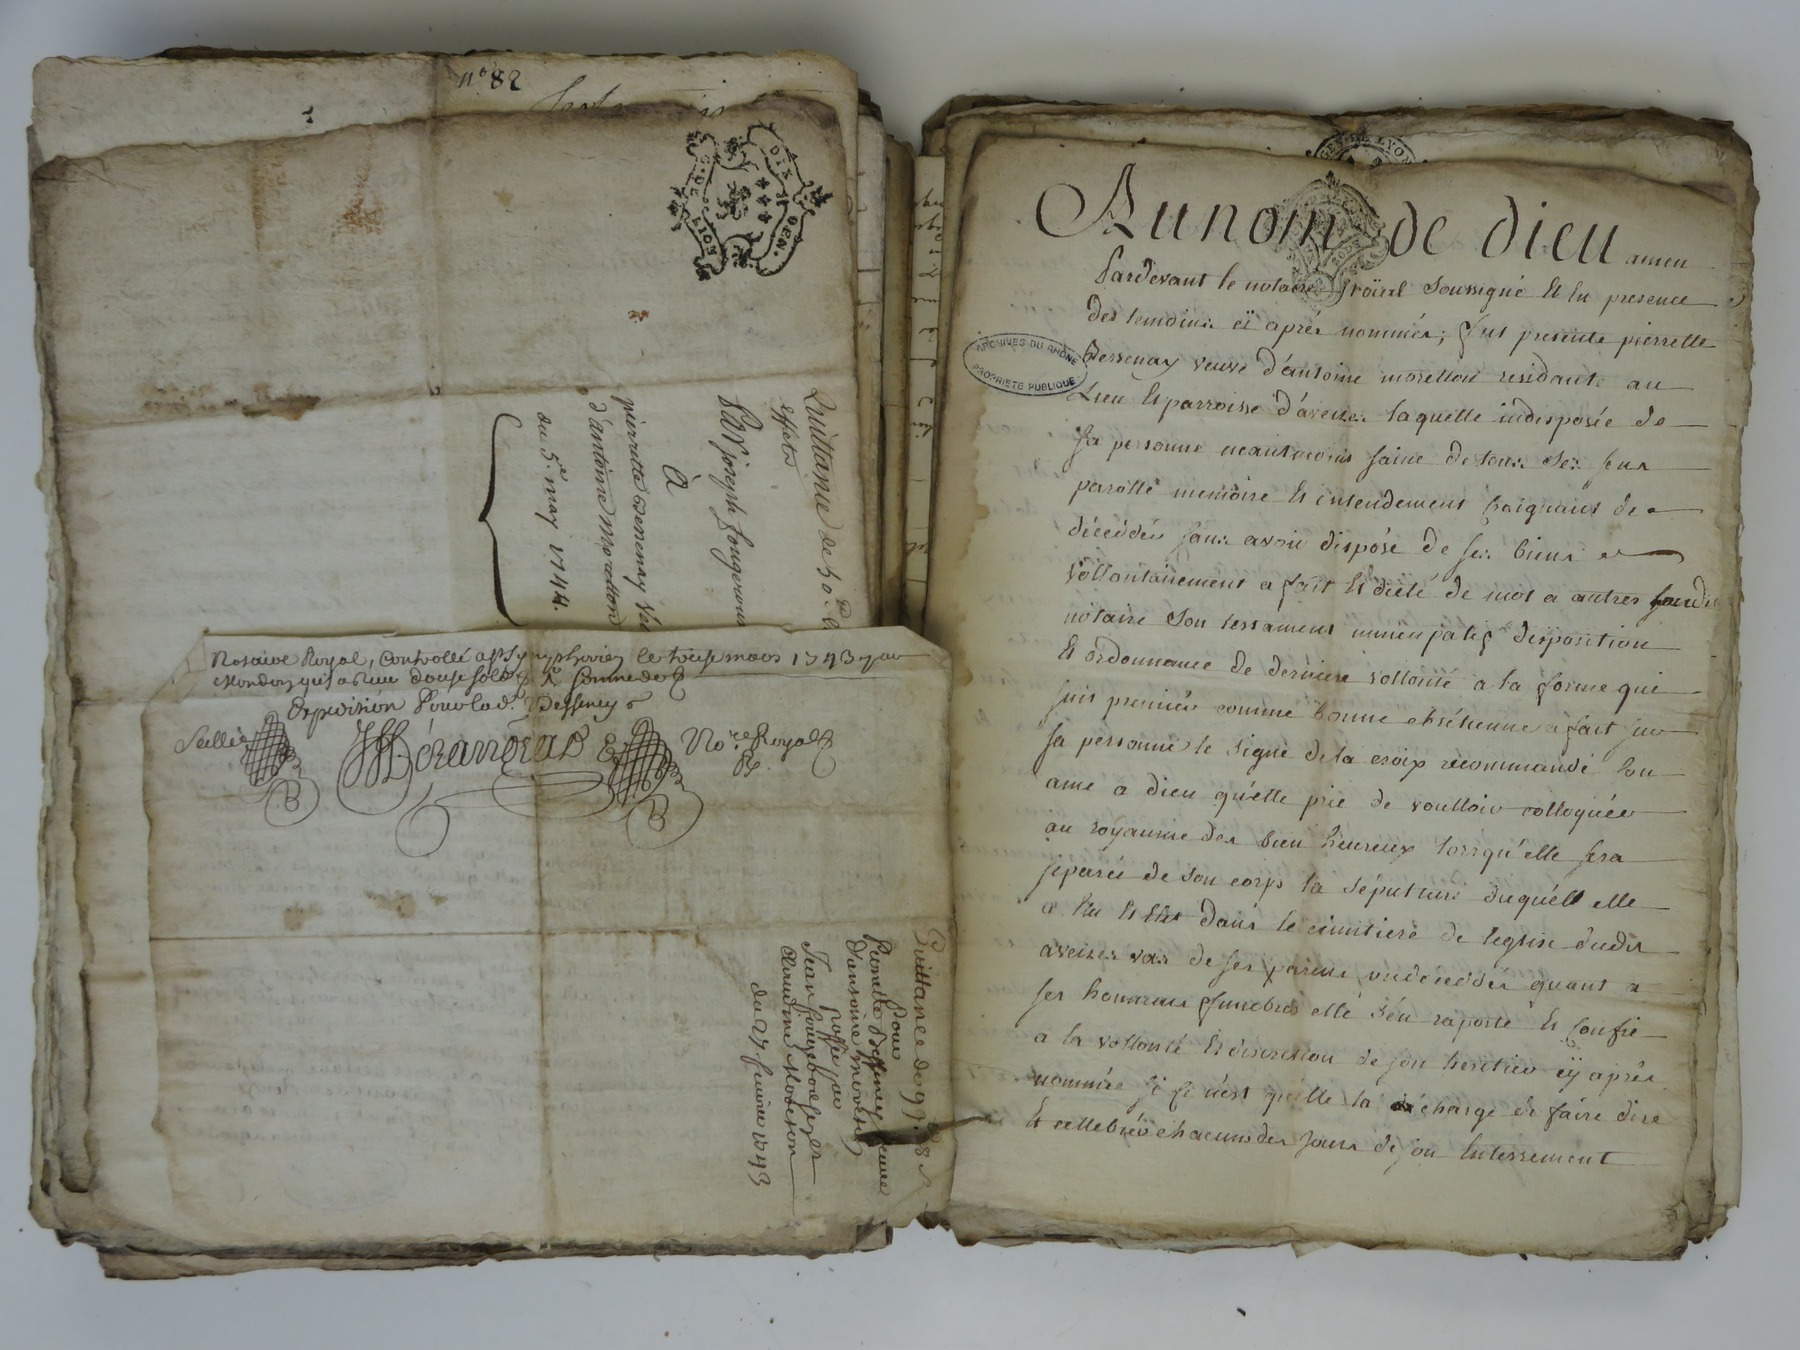 n.º 82
DIX II DEN.
G. DE LION
Quittance de 50 ᵗᵗ
effets
Par Joseph fougerous
à
pierrette dessenay ve
d'antoine morellon
du 5.e may 1744.
Notaire Royal, Controllé a St Symphorien le treise mars 1743 par
qui a Reçu douse sols
Expedition Pour lad. Desseney
Scellé Nore. Royal
Quittance de 97
Pour
Pierrette Desseney veuve
D'antoine morellon
Passée par
Jean fougerouse
Claudine
du 27 feurier 1743
GEN. DE LYON
Au nom de dieu amen
Pardevant le notaire Royal Soussigné Et En presence
des temoins cy aprés nommés; fut presente pierrette
Dessenay veuve d'antoine morellon residante au
Lieu Et parroisse d'aveizes laquelle indisposée de
sa personne neantmoins saine de tous ses sens
parolle memoire Et entendement Craignant de
décédder sans avoir disposé de ses biens
vollontairement a fait Et dicté de mot a autres audit
notaire Son testament nuncupatif disposition
Et ordonnance de derniere vollonté a la forme qui
suit premier comme bonne chrétienne a fait sur
sa personne le signe de la croix recommandé son
ame a dieu qu'elle prie de voulloir colloquer
au royaume des bien heureux lorsqu'elle sera
separée de son corps la sépulture duquél elle
a Eslu dans le cimitiere de leglise dudit
aveizes vas de ses parens predeceddés quant a
ses honneurs funebres elle s'én raporte Et confie
a la vollonté Et discretion de son heritier cy aprés
nommée si ce n'est qu'elle la charge de faire dire
Et cellebrer chacuns des jours de son Enterrement
ARCHIVES DU RHÔNE
PROPRIETE PUBLIQUE